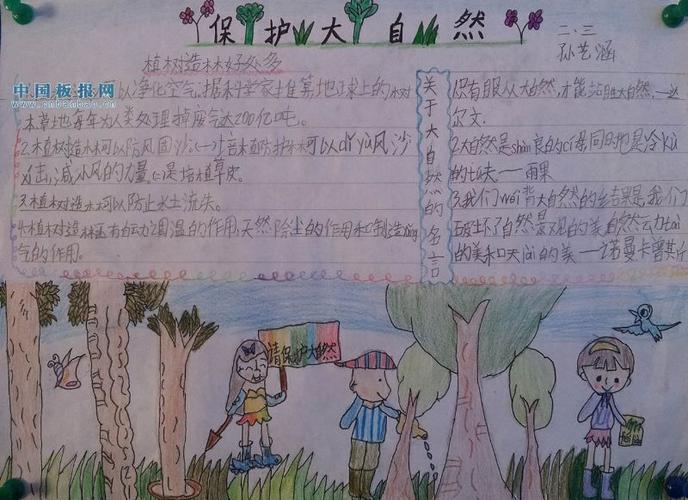 保护大自然
二.三
孙艺涵
植树造林好处多
中国板报网
www.cnbanbao.cn
可以净化空气,据科学家推算地球上的
本草地每年为人类处理掉废气达200亿吨。
2.植树造林可以防风固沙
可以dǐ yù风沙
击,减小风的力量,
是培植草皮。
3.植树造林可以防止水土流失。
4.植树造林
的作用,天然除尘的作用和制造
气的作用。
关于大自然的名言
没有服从大自然,才能战胜大自然,——达
尔文.
2.大自然是shàn良的cí母同时也是冷kù
的tú夫——雨果
3.我们wéi背大自然的结果是我们
破坏了自然
的美自然
的美和天
的美——诺曼卡曾斯
请保护大自然